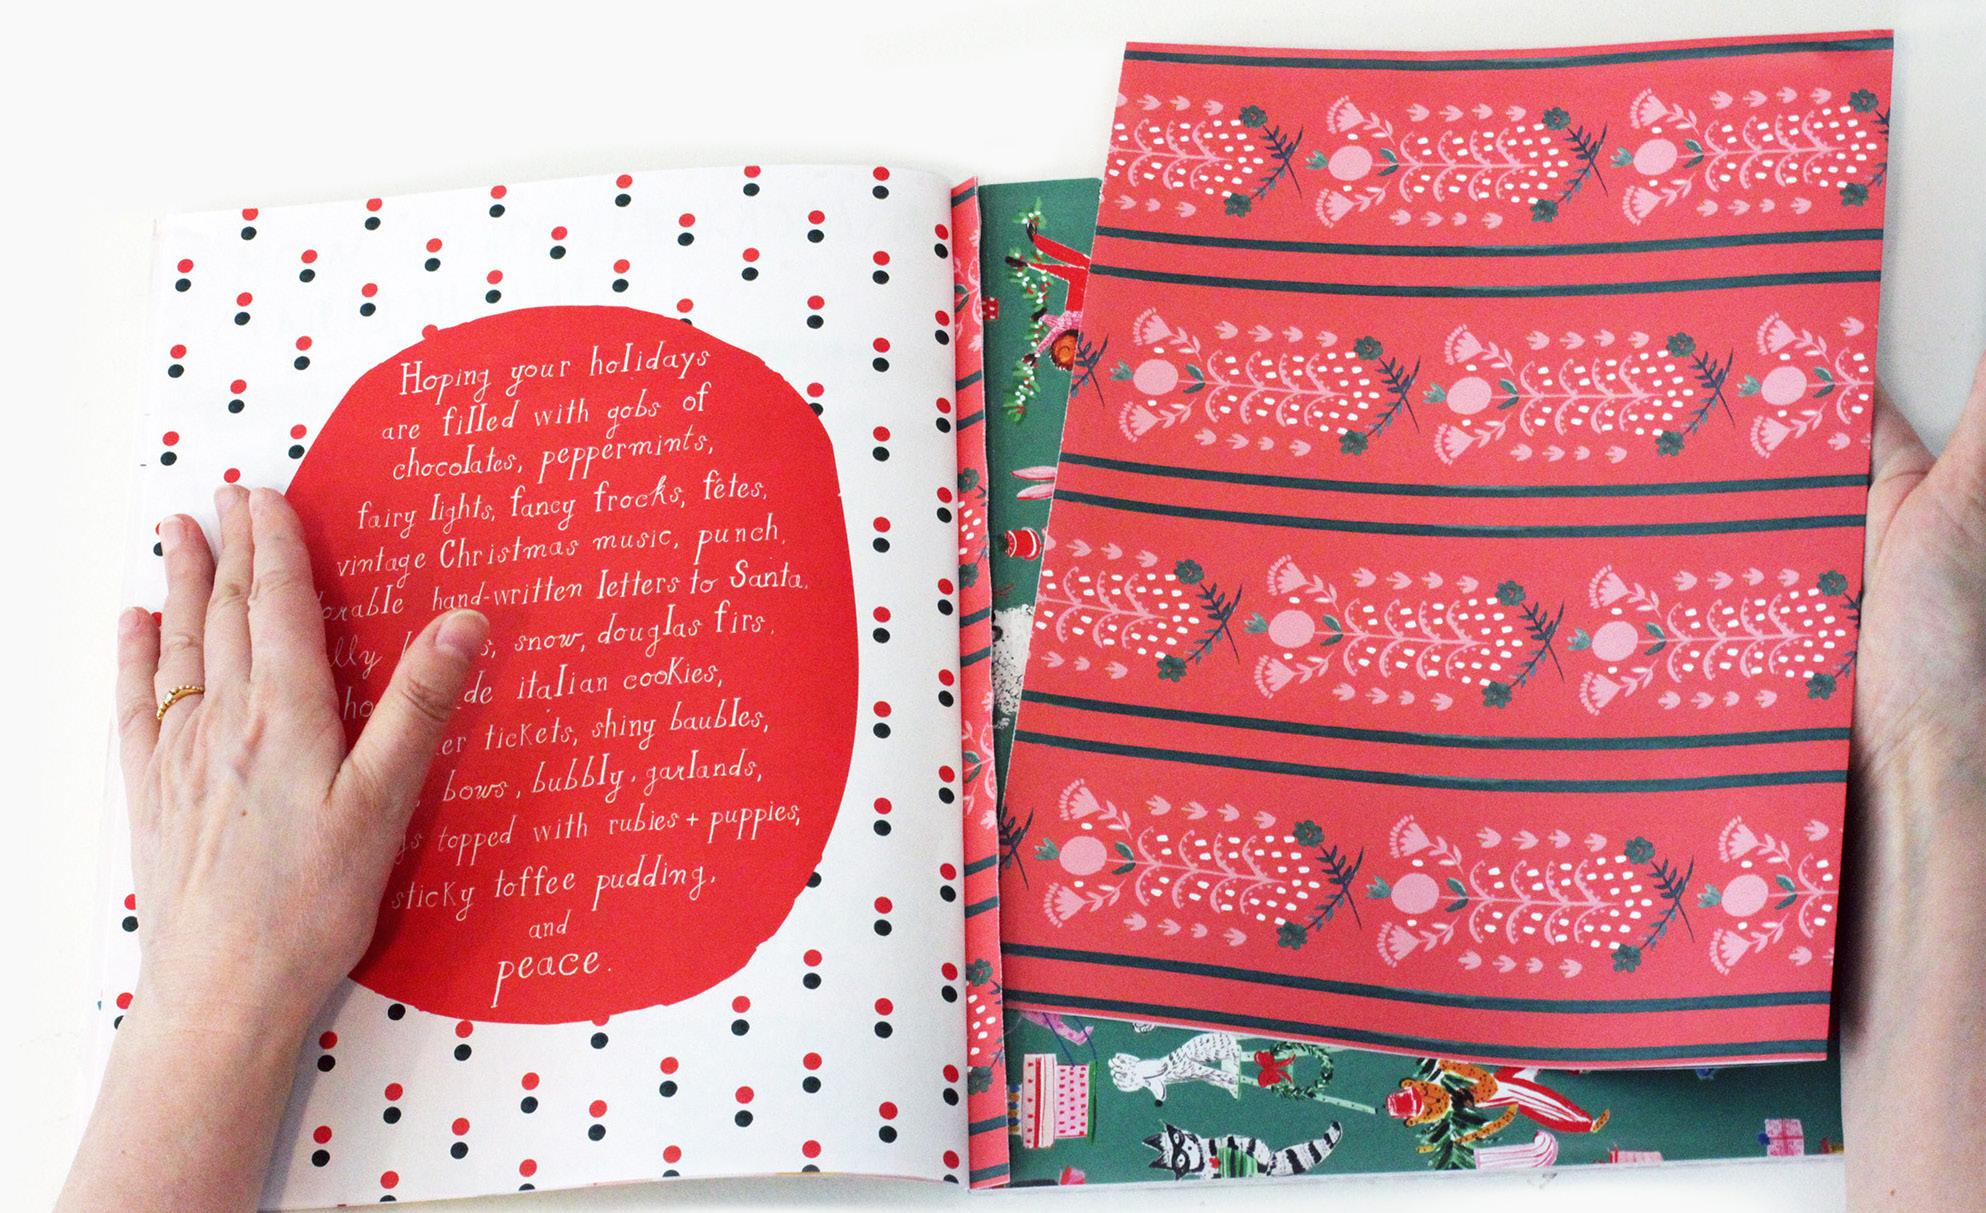 Hoping your holidays
are filled with gobs of
chocolates, peppermints,
fairy lights, fancy frocks, fêtes,
vintage Christmas music, punch,
hand-written letters to Santa,
snow, douglas firs,
italian cookies,
tickets, shiny baubles,
bows, bubbly, garlands,
topped with rubies + puppies,
sticky toffee pudding,
and
peace.